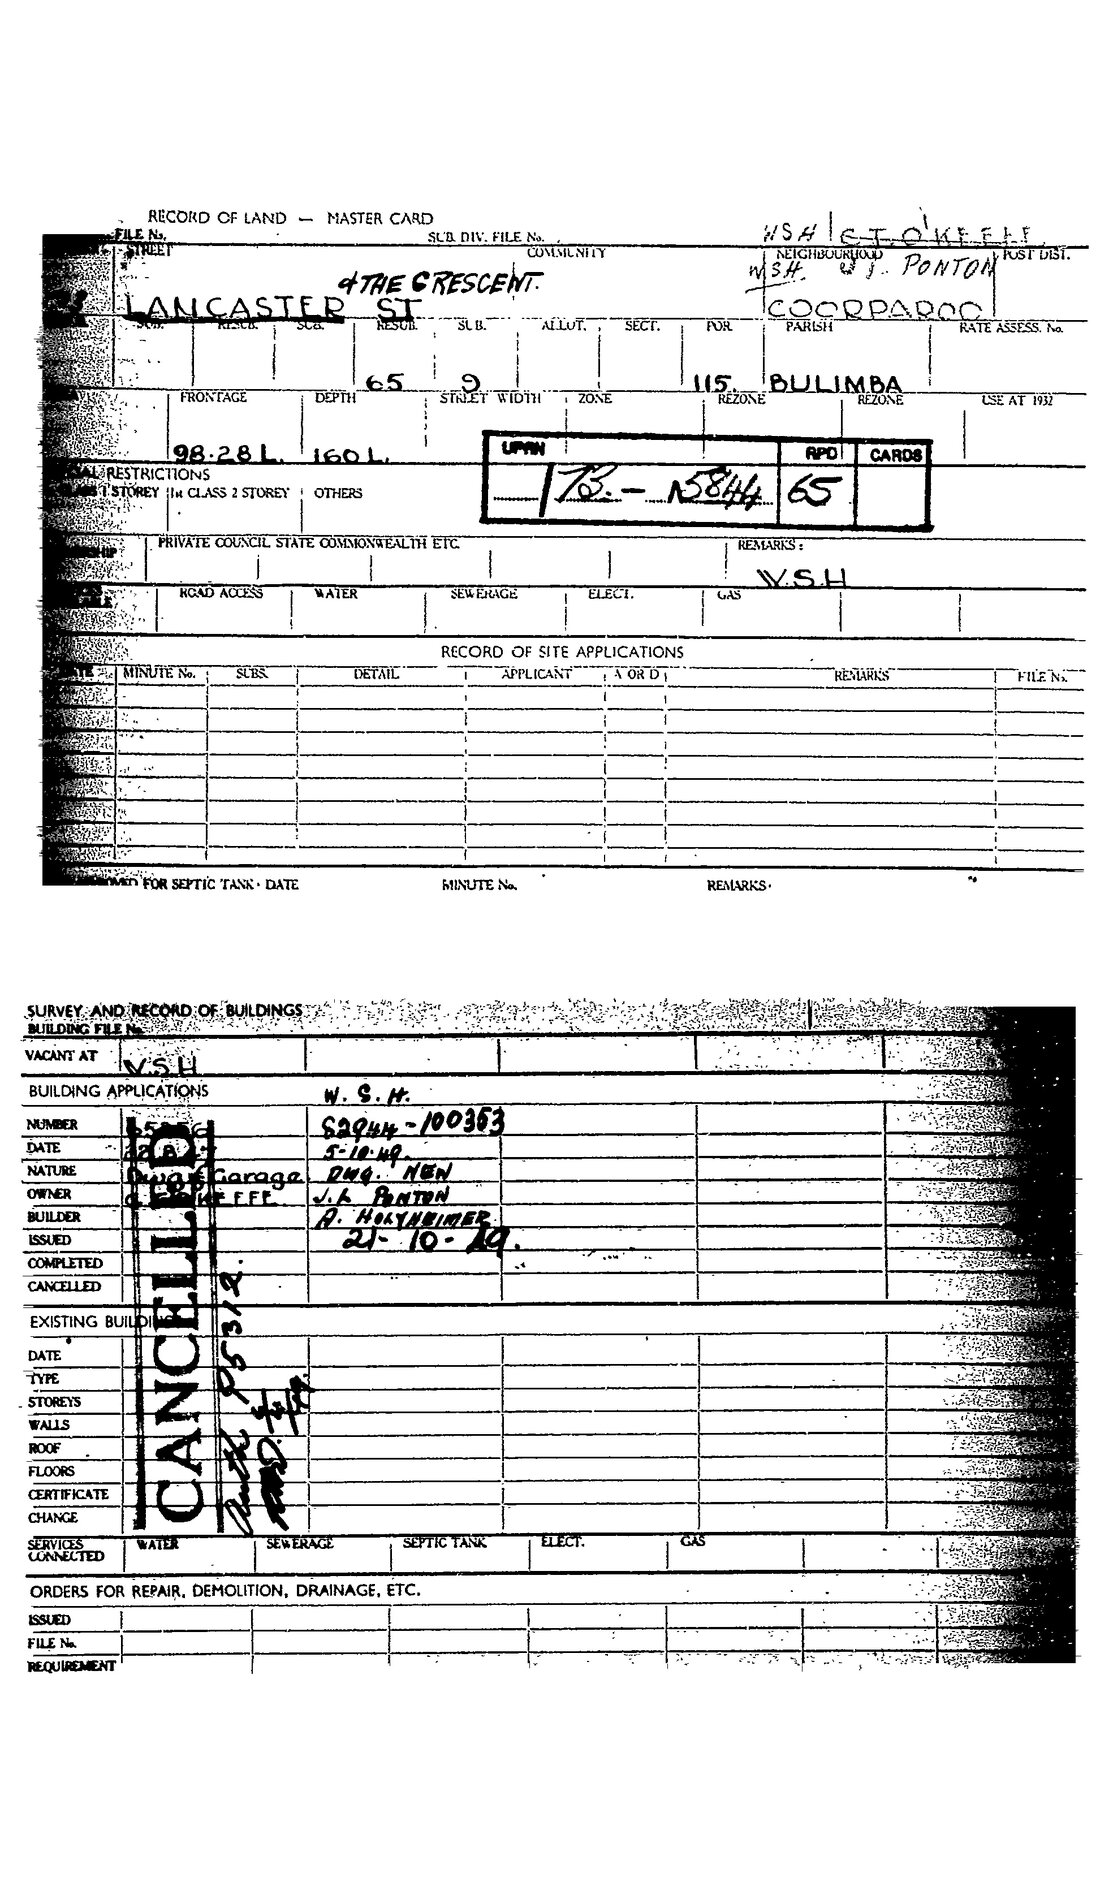 RECORD OF LAND — MASTER CARD
FILE No. SUB. DIV. FILE No. WSH C T O'KEEFE
STREET COMMUNITY NEIGHBOURHOOD POST DIST.
& THE CRESCENT. WSH. PONTON
LANCASTER ST COORPAROO
SUB. RESUB. SUB. RESUB. SUB. ALLOT. SECT. POR. PARISH RATE ASSESS. No.
65 9 115. BULIMBA
FRONTAGE DEPTH STREET WIDTH ZONE REZONE REZONE USE AT 1932
98·28 L. 160 L.
UPRN RPD CARDS
73.— 5844 65
RESTRICTIONS
CLASS 1 STOREY 1st CLASS 2 STOREY OTHERS
PRIVATE COUNCIL STATE COMMONWEALTH ETC. REMARKS:
V.S.H
ROAD ACCESS WATER SEWERAGE ELECT. GAS
RECORD OF SITE APPLICATIONS
DATE MINUTE No. SUBS. DETAIL APPLICANT A OR D REMARKS FILE No.
FOR SEPTIC TANK · DATE MINUTE No. REMARKS·
SURVEY AND RECORD OF BUILDINGS
BUILDING FILE No.
VACANT AT V.S.H
BUILDING APPLICATIONS W. S. H.
NUMBER 82944-100353
DATE 5-10-49.
NATURE Garage DWG. NEW
OWNER PONTON
BUILDER A.
ISSUED 21-10-49.
COMPLETED
CANCELLED
CANCELLED
EXISTING BUILDINGS
DATE
TYPE
STOREYS
WALLS
ROOF
FLOORS
CERTIFICATE
CHANGE
SERVICES CONNECTED WATER SEWERAGE SEPTIC TANK ELECT. GAS
ORDERS FOR REPAIR, DEMOLITION, DRAINAGE, ETC.
ISSUED
FILE No.
REQUIREMENT